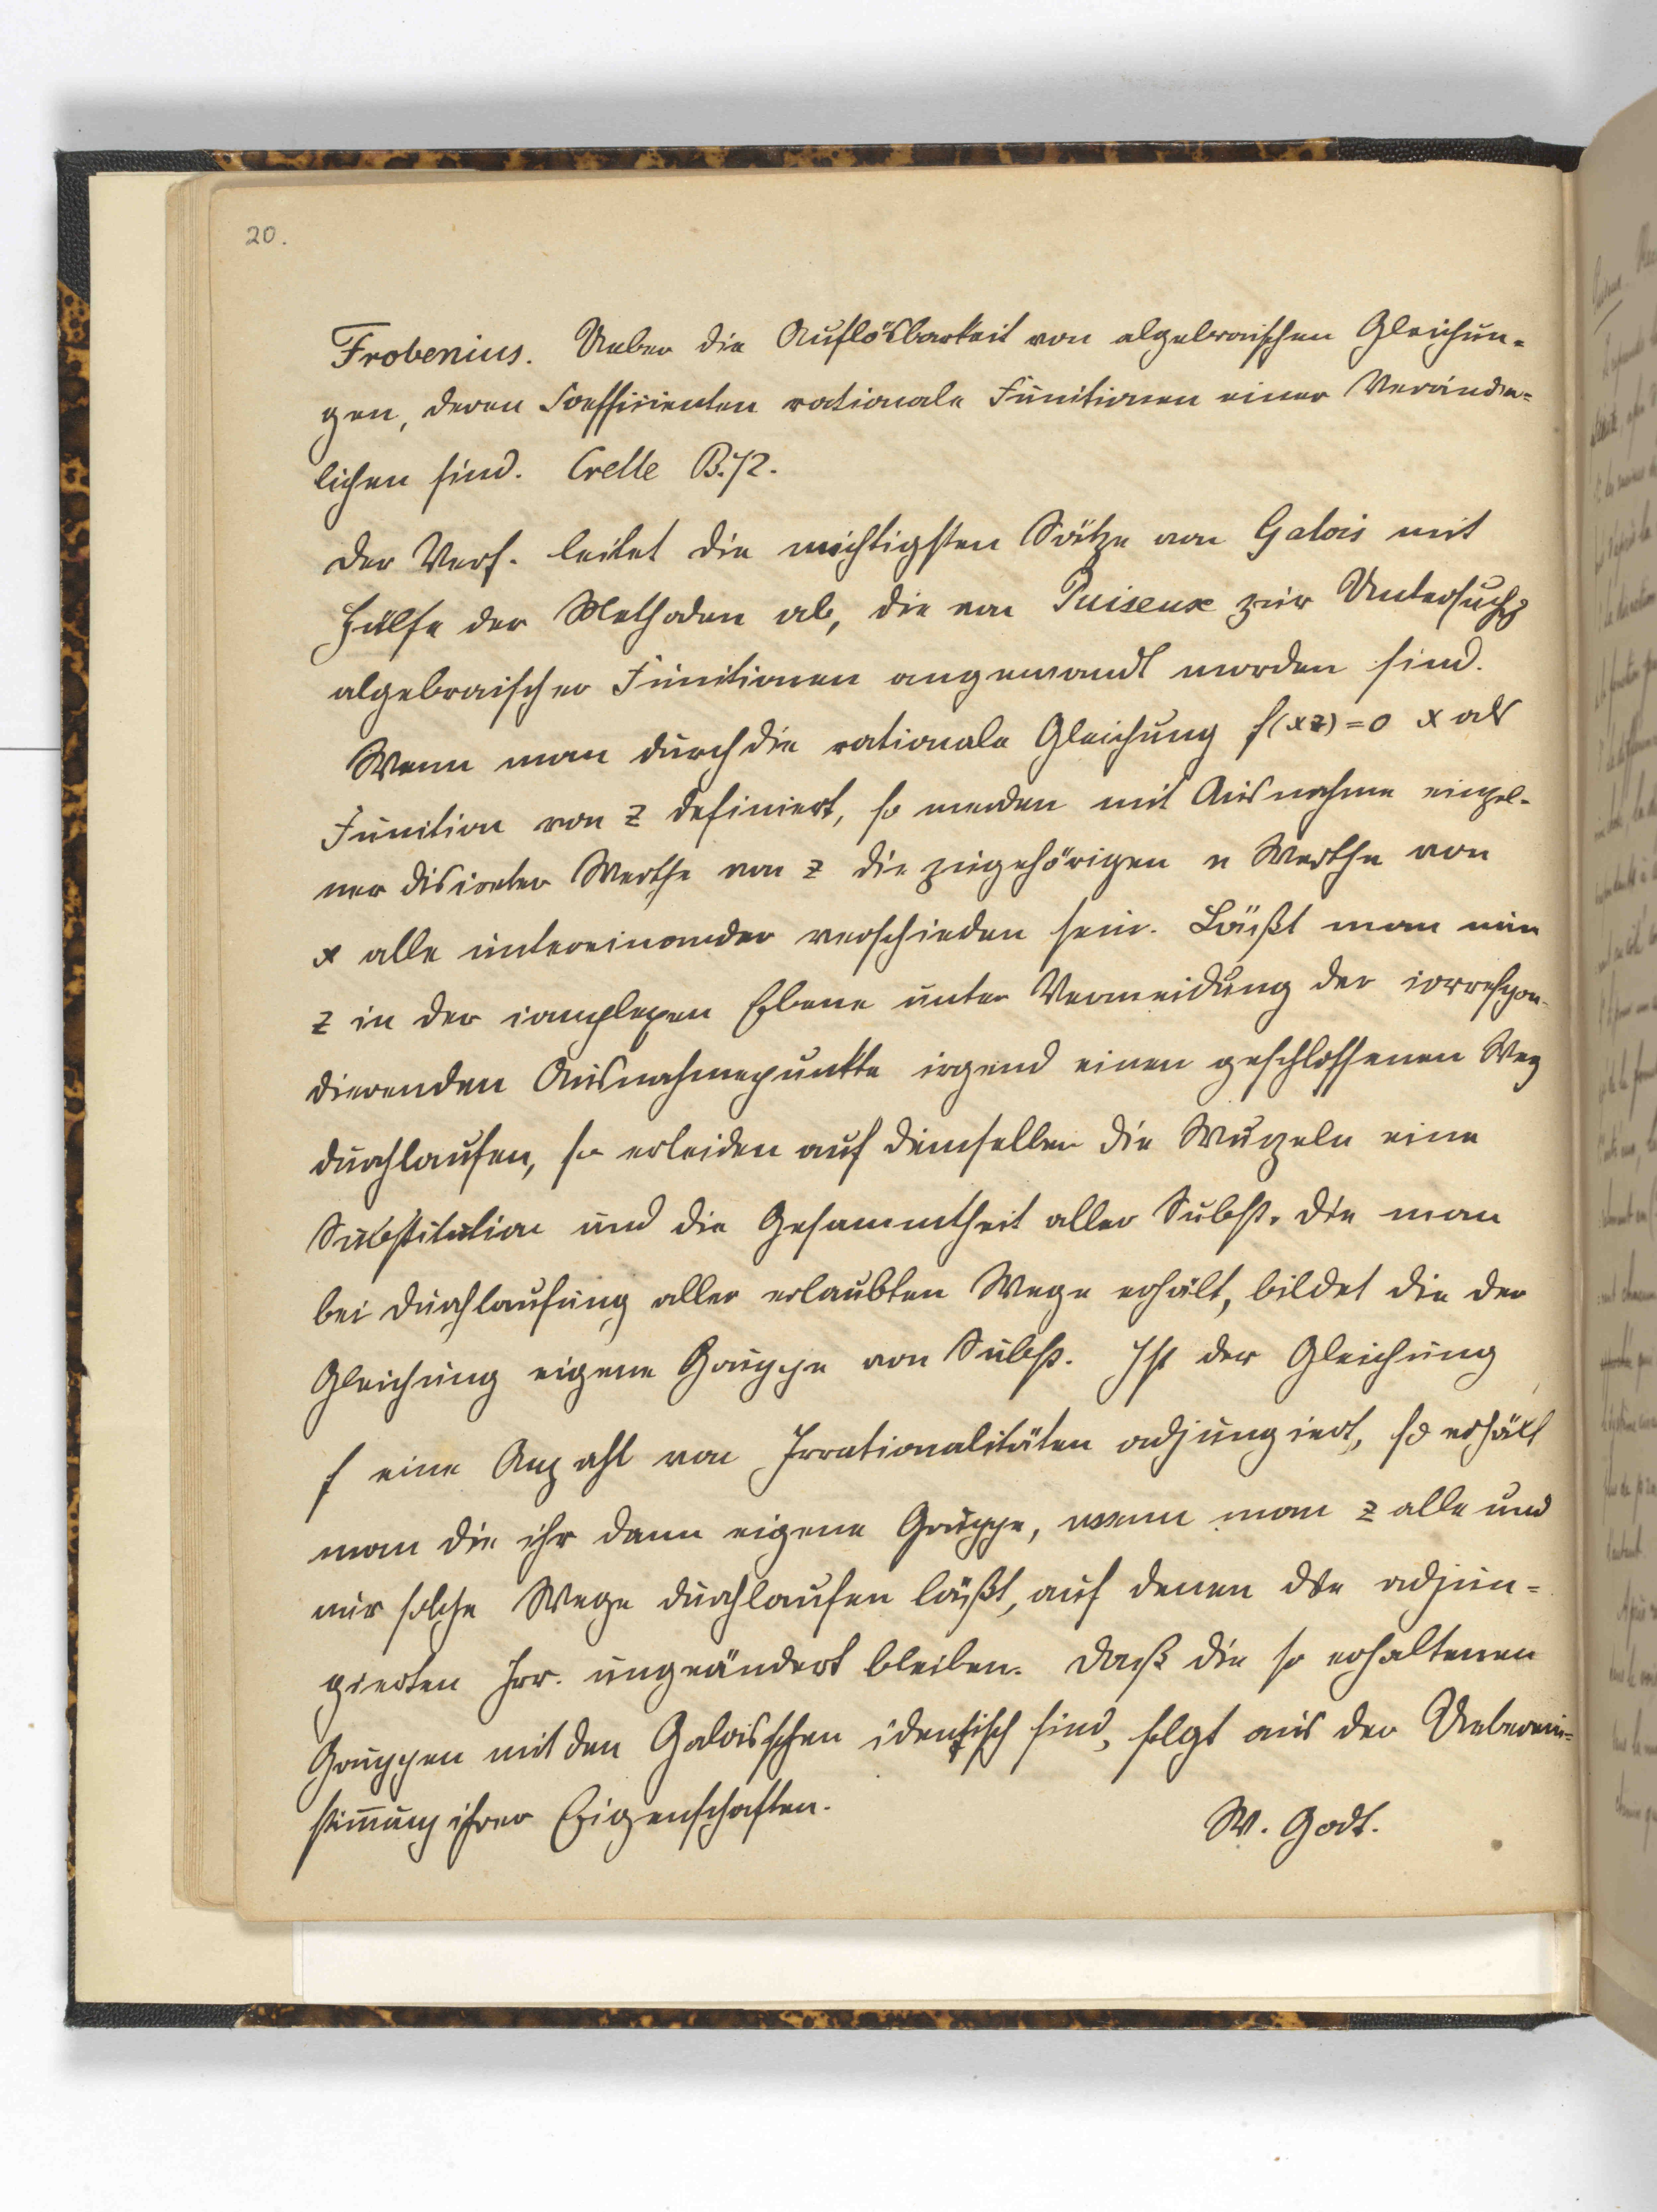 20.
Frobenius. Ueber die Auflösbarkeit von algebraischen Gleichun-
gen, deren Coefficienten rationale Functionen einer Veränder-
lichen sind. Crelle B.72.
Der Verf. leitet die wichtigsten Sätze von Galois mit
Hülfe der Methoden ab, die von Puiseux zur Untersuchg
algebraischer Functionen angewandt worden sind.
Wenn man durch die rationale Gleichung f(xz)=0 x als
Function von z definiert, so werden mit Ausnahme einzel-
ner discreter Werthe von z die zugehörigen n Werthe von
x alle untereinander verschieden sein. Läßt man nun
z in der complexen Ebene unter Vermeidung der correspon-
dierenden Ausnahmepunkte irgend einen geschlossenen Weg
durchlaufen, so erleiden auf demselben die Wurzeln eine
Substitution und die Gesammtheit aller Subst. die man
bei Durchlaufung aller erlaubten Wege erhält, bildet die der
Gleichung eigene Gruppe von Subst. Ist der Gleichung
f eine Anzahl von Irrationalitäten adjungiert, so erhält
man die ihr dann eigene Gruppe, wenn man z alle und
nur solche Wege durchlaufen läßt, auf denen die adjun-
gierten Irr. ungeändert bleiben. Daß die so erhaltenen
Gruppen mit den Galoisschen identisch sind, folgt aus der Ueberein-
stimmung ihrer Eigenschaften.
W. Godt.